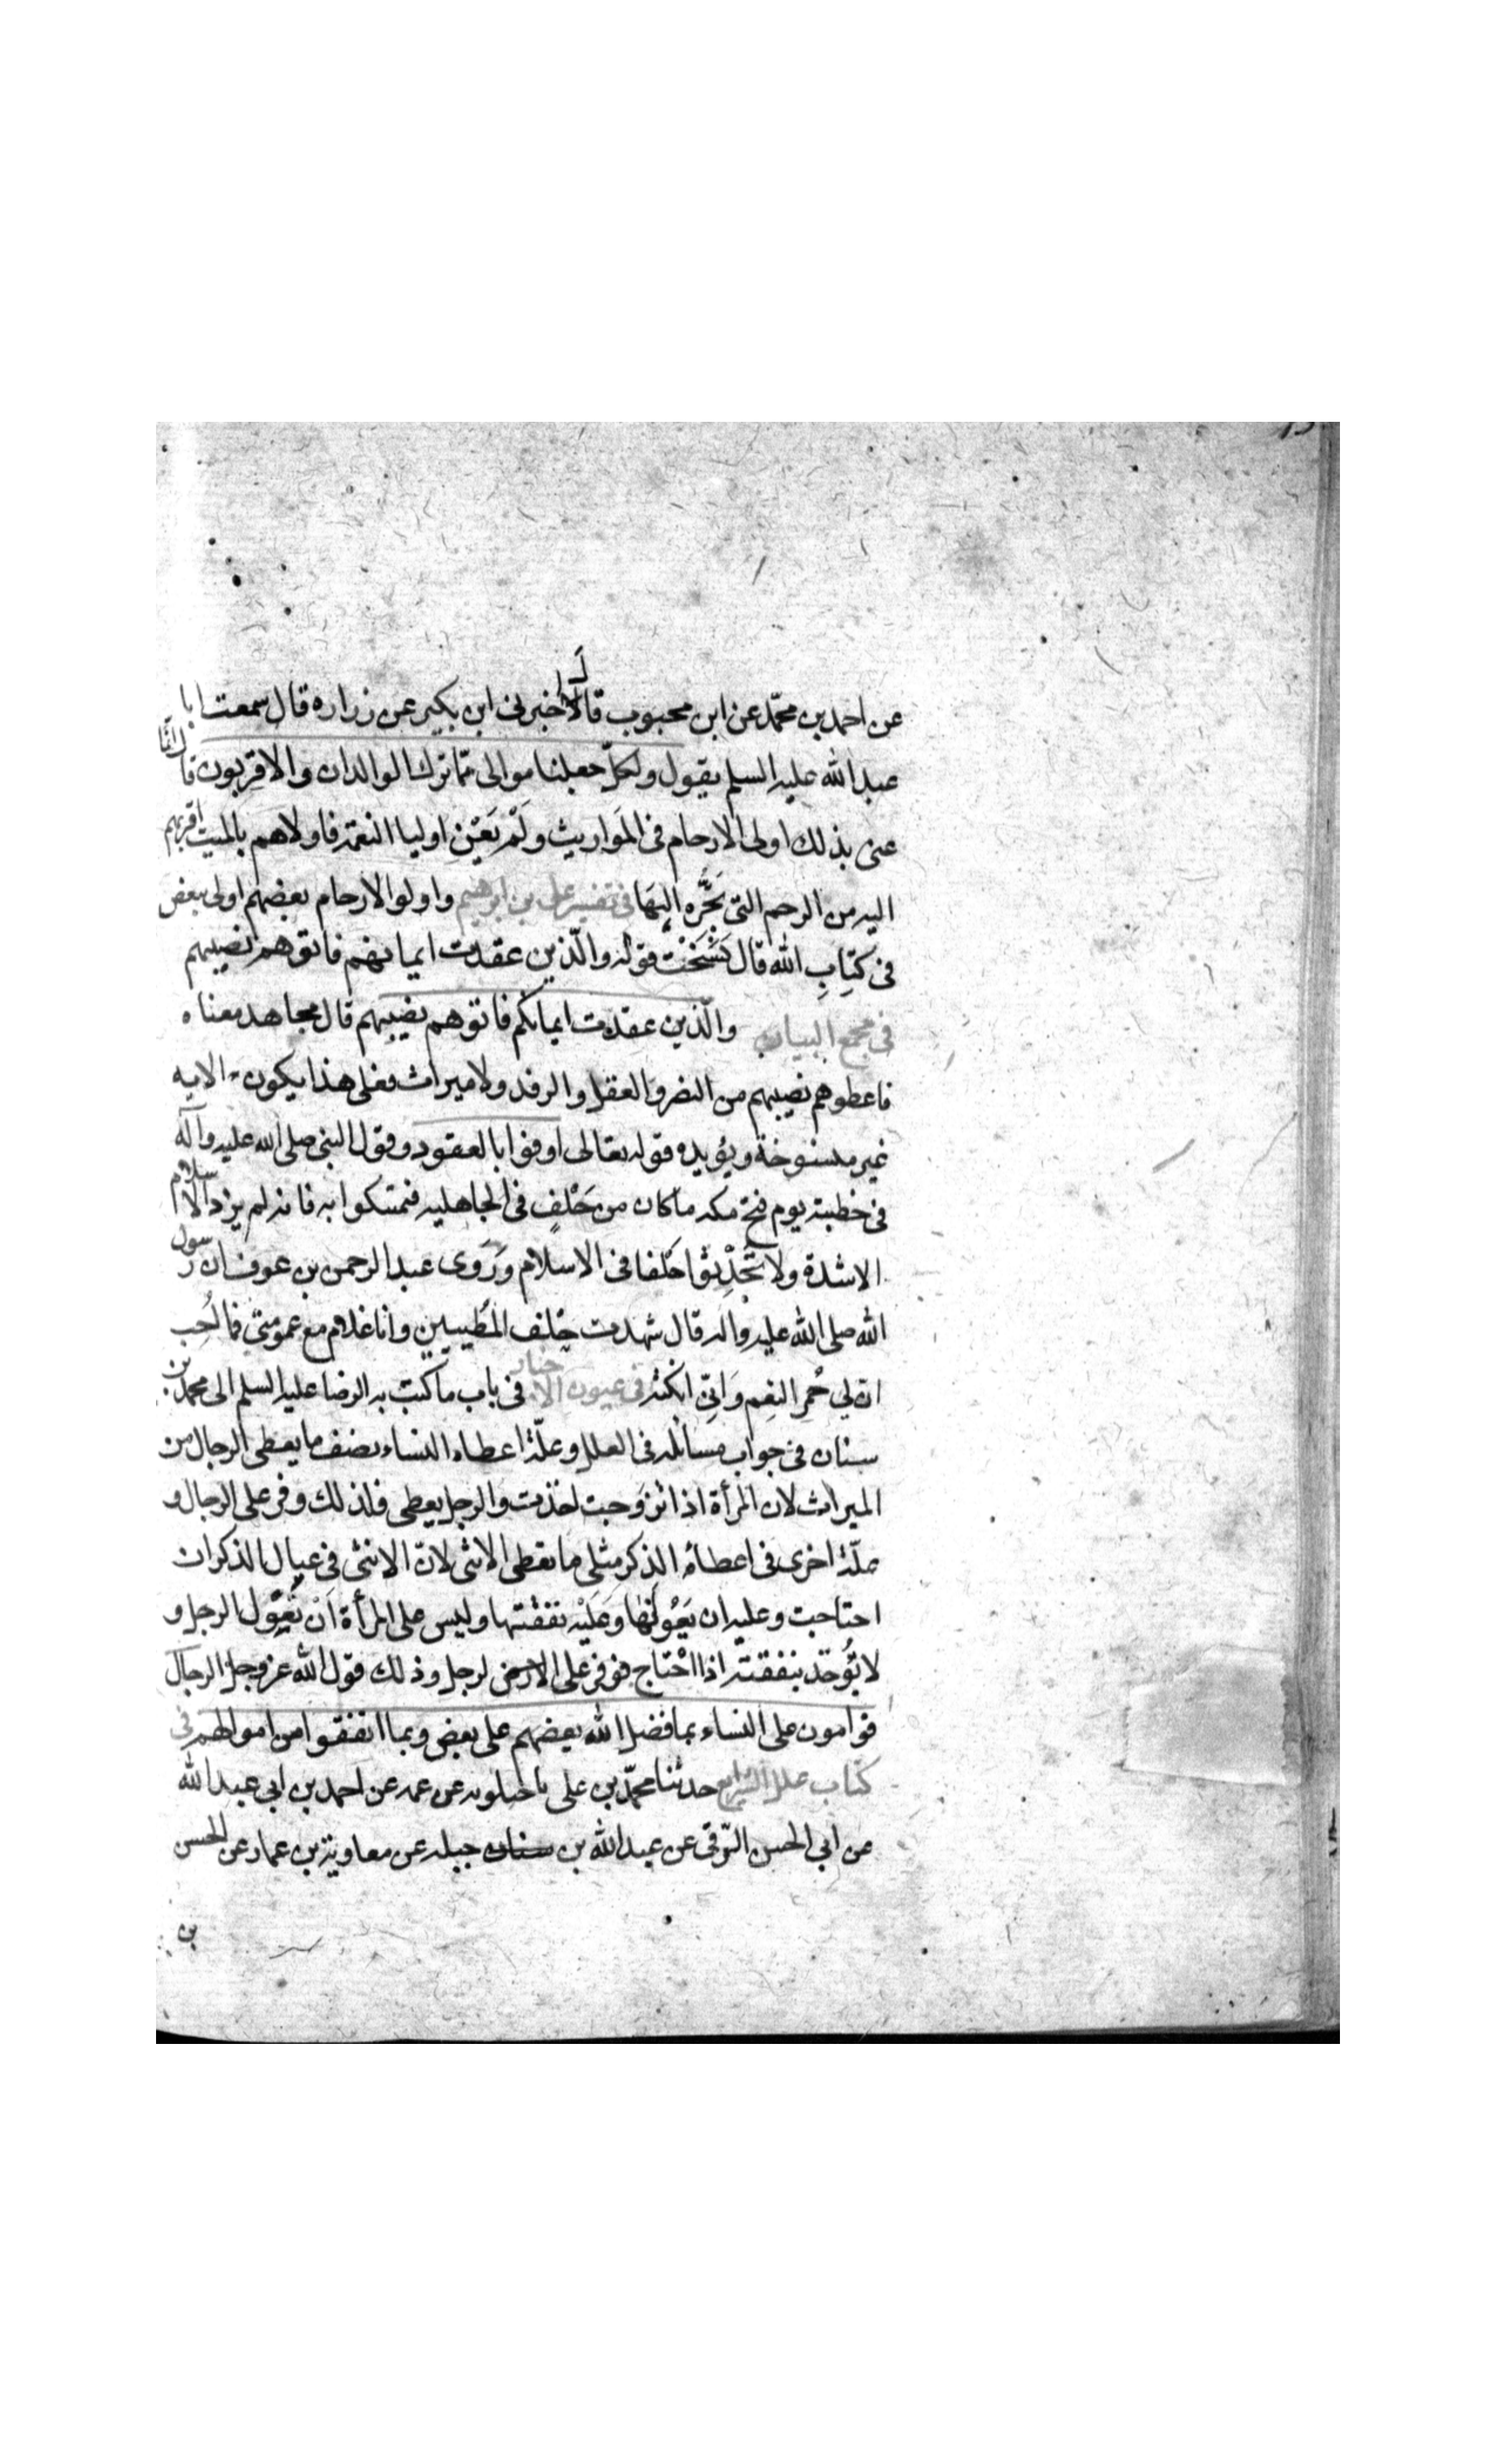 عن احمد بن محمّد عن ابن محبوب قال اخبرنى ابن بكير عن زراره قال سمعت ابا
عبد الله عليه السلم يقول ولكلّ جعلنا موالى ممّا ترك الوالدان والاقربون قال انّما
عنى بذلك اولى الارحام فى المَواريث ولَمْ يَعْنِ اوليا النعمة فاولاهم بالميت اقربهم
اليه من الرحم التى تَجُرُّه اليهَا فى تفسير على بن ابرهيم واولو الارحام بعضهم اولى ببعض
فى كتِابِ الله قال نَسَخَتْ قوله والّذين عقدت ايمانهم فاتوهم نصيبهم
فى مجمع البيان والّذين عقدت ايمانكم فاتوهم نصيبهم قال مجاهد معناه
فاعطوهم نصيبهم من النصر والعقل والرفد ولا ميراث فعلى هذا يكون الايه
غير منسوخة ويؤيده قوله تعالى اوفوا بالعقود وقول النبى صلى الله عليه وآله
فى خطبته يوم فتح مكه ما كان من حَلْفٍ فى الجاهليه فتمسكوا به فانه لم يزد الاسلام
الا شدة ولا تُحْدِثوا حَلفا فى الاسلام ورَوى عبد الرحمن بن عوف ان رسول
الله صلى الله عليه واله قال شهدت حِلف المُطيبين وانا غلام مع عمومتى فما اُحب
ان لِي حُمر النِعم وَانِّى انكثه فى عيون الاخبار فى باب ما كتب به الرضا عليه السلم الى محمد بن
سنان فى جواب مسائله فى العلل وعلّة اعطاء النساء نصف ما يعطى الرجال من
الميراث لان المرأة اذا تزوجت اخذت والرجل يعطى فلذلك وفر على الرجال و
علّة اخرى فى اعطاء الذكر مثلى ما تعطى الانثى لانّ الانثى فى عيال الذكر ان
احتاجت وعليه ان يَعُولَهَا وعَلَيْه نفقتها وليس على المرأة اَنْ تَعُول الرجل و
لا تُوخذ بنفقته اذا احْتاج فوفر على الارض لرجل وذلك قول الله عز وجل الرجال
قوامون على النساء بما فضل الله بعضهم على بعض وبما انفقوا من اموالهم فى
كتاب علل الشرايع حدثنا محمّد بن على ماجيلويه عن عمه عن احمد بن ابى عبد الله
عن ابي الحسن البرقى عن عبد الله بن سنان جبله عن معاوية بن عمار عن الحسن
بن